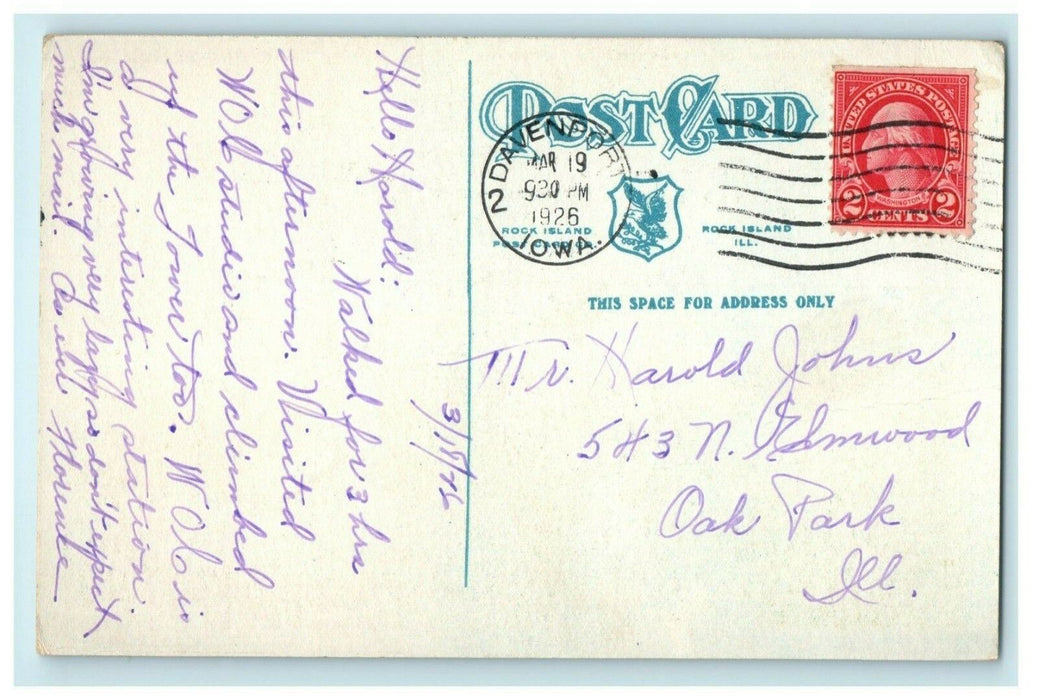 POST CARD
DAVENPORT
MAR 19
930 PM
1926
IOWA.
2
UNITED STATES POSTAGE
WASHINGTON
2 CENTS 2
ROCK ISLAND
POST CARD CO.
ROCK ISLAND
ILL.
THIS SPACE FOR ADDRESS ONLY
Mr. Harold Johns
543 N. Elmwood
Oak Park
Ill.
3/18/26
Hello Harold:
Walked for 3 hrs
this afternoon. Visited
WOC studio and climbed
up the Tower too. WOC is
a very interesting station.
I'm growing very lazy so don't expect
much mail. As ever Florence